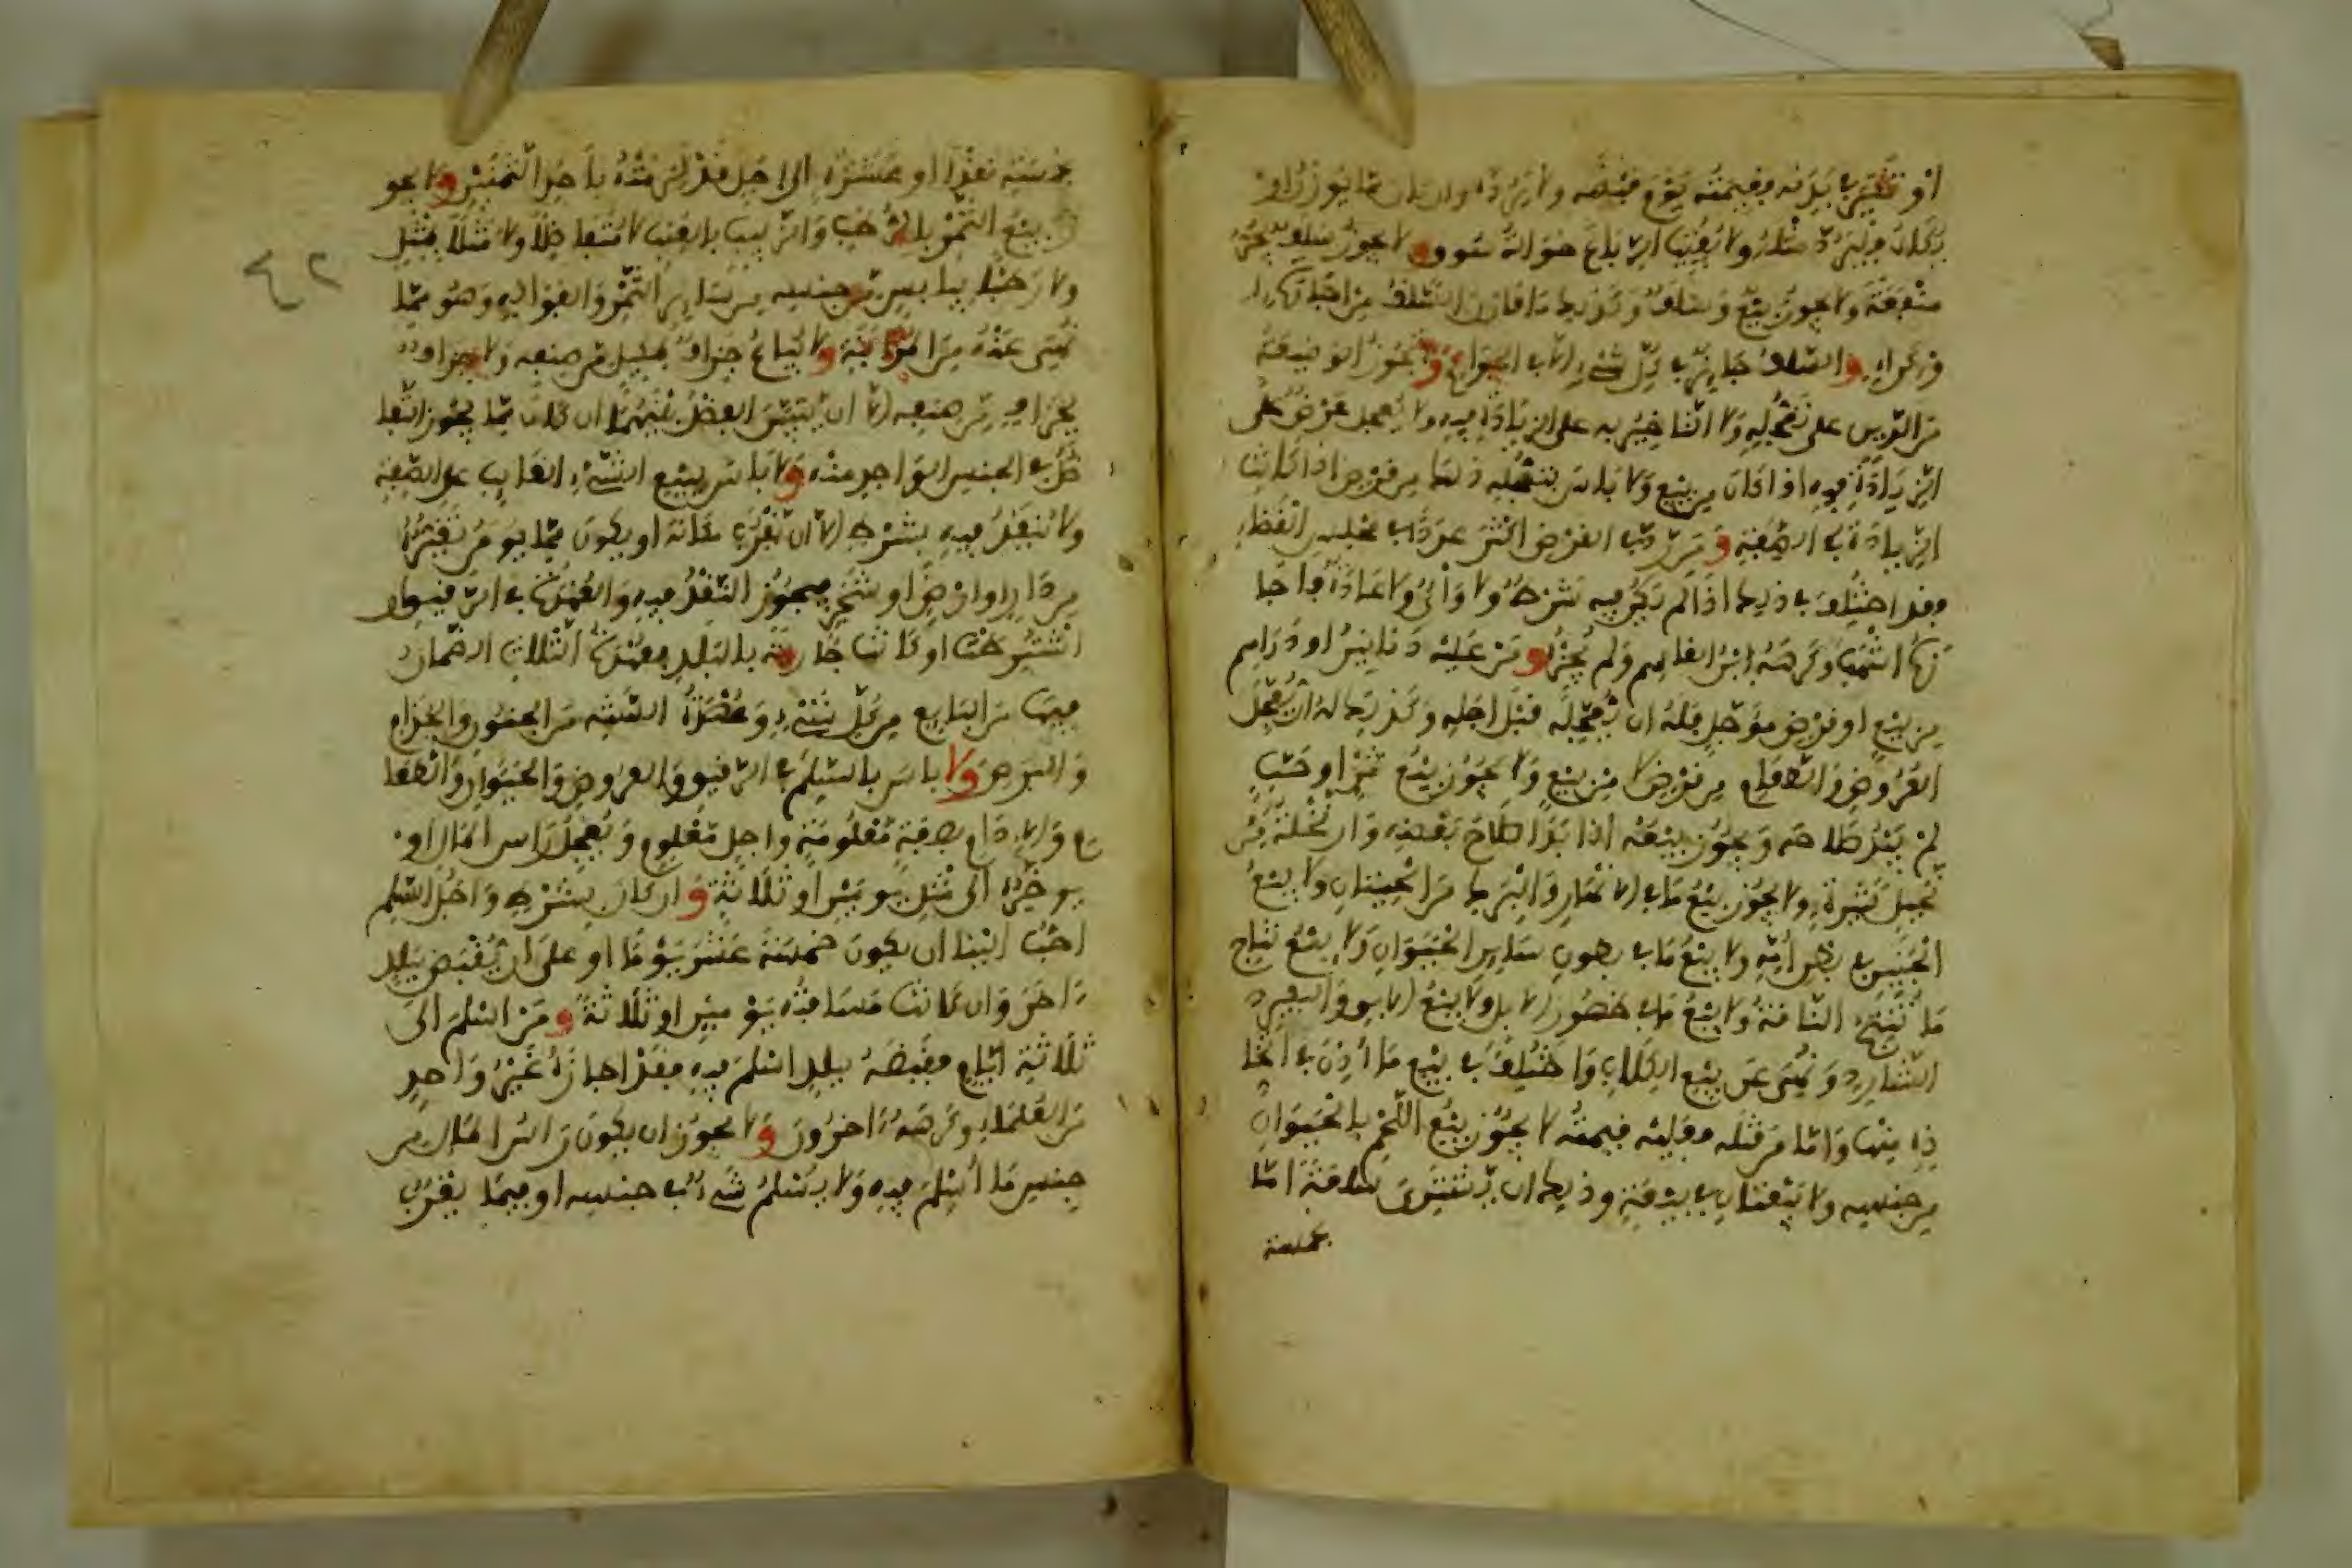 او تغير في بدنه فقيمته يوم قبضه ولا يرده وان كان مما يوزن او
يكال فليرد مثله ولا يفيت الرباع حوالة سوق ولا يجوز سلف يجر
منفعة ولا يجوز بيع وسلف وكذلك ما قارن السلف من اجارة
او كراء والسلف جايز في كل شيء الا في الجواري ولا تجوز الوضيعة
من الدين على تعجيله ولا التاخير به على الزيادة فيه ولا تعجيل عرض على
الزيادة فيه اذا كان من بيع ولا باس بتعجيله ذلك من قرض اذا كانت
الزيادة في الصفة ومن رد في القرض اكثر عددا في مجلس القضاء
فقد اختلف في ذلك اذا لم يكن فيه شرط ولا واي ولا عادة فاجا
زه اشهب وكرهه ابن القاسم ولم يجزه ومن عليه دنانير او دراهم
من بيع او قرض مؤجل فله ان يعجله قبل اجله وكذلك له ان يعجل
العروض والطعام من قرض لا من بيع ولا يجوز بيع ثمر او حب
لم يبد صلاحه ويجوز بيعه اذا بدا صلاح بعضه وان نخلة من
نخيل كثيرة ولا يجوز بيع ما في الانهار والبرك من الحيتان ولا بيع
الجنين في بطن امه ولا بيع ما في بطون ساير الحيوان ولا بيع نتاج
ما تنتج الناقة ولا بيع ما في ظهور الابل ولا بيع الابق والبعير
الشارد ونهي عن بيع الكلاب واختلف في بيع ما اذن في اتخا
ذه منها واما من قتله فعليه قيمته لا يجوز بيع اللحم بالحيوان
من جنسه ولا بيعتان في بيعة وذلك ان يشتري سلعة اما
بخمسة
بخمسة نقدا او عشرة الى اجل قد لزمته باحد الثمنين ولا يجو
ز بيع التمر بالرطب والزبيب بالعنب لا متفاضلا ولا مثلا بمثل
ولا رطب بيابس من جنسه من ساير الثمر والفواكه وهو مما
نهي عنه من المزابنة ولا يباع جزاف بمكيل من صنفه ولا جزاف
بجزاف من صنفه الا ان يتبين الفضل بينهما ان كان مما يجوز التفا
ضل في الجنس الواحد منه ولا باس ببيع الشيء الغايب على الصفة
ولا ينقد فيه بشرط الا ان يقرب مكانه او يكون مما يومن تغيره
من دار او ارض او شجر فيجوز النقد فيه والعهدة في الرقيق
اشترطت او كانت جارية بالبلد فعهدة الثلاث الضمان
فيها من البايع من كل شيء وعهدة السنة من الجنون والجذام
والبرص ولا باس بالسلم في الرقيق والعروض والحيوان والطعا
م والادام بصفة معلومة واجل معلوم ويعجل راس المال او
يوخره الى مثل يومين او ثلاثة وان كان بشرط واجل السلم
احب الينا ان يكون خمسة عشر يوما او على ان يقبض ببلد
اخر وان كانت مسافته يومين او ثلاثة ومن اسلم الى
ثلاثة ايام فقبضه ببلد اسلم فيه فقد اجازه غير واحد
من العلماء وكرهه اخرون ولا يجوز ان يكون راس المال من
جنس ما اسلم فيه ولا يسلم شيء في جنسه او فيما يقرب
٤٢